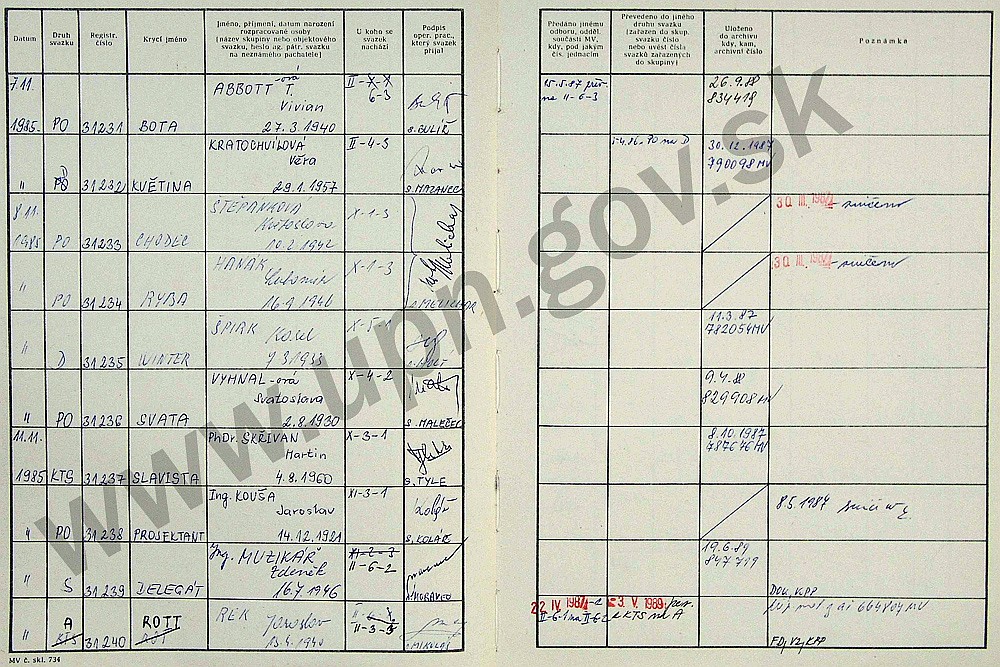 Datum
Druh svazku
Registr. číslo
Krycí jméno
Jméno, příjmení, datum narození
rozpracované osoby
(název skupiny nebo objektového
svazku, heslo ag. pátr. svazku
na neznámého pachatele)
U koho se
svazek
nachází
Podpis
oper. prac.,
který svazek
přijal
Předáno jinému
odboru, odděl.
součásti MV,
kdy, pod jakým
čís. jednacím
Převedeno do jiného
druhu svazku
(zařazen do skup.
svazku číslo
nebo uvést čísla
svazků zařazených
do skupiny)
Uloženo
do archivu
kdy, kam,
archivní číslo
Poznámka
7.11. 1985 PO 31231 BOTA
ABBOTT -ová T.
Vivian
27.3.1940
II-X-X
6-3
s. GULIŠ
15.5.87
na II-6-3
26.9.88
834419
" 31232 KVĚTINA
KRATOCHVÍLOVÁ
Věra
29.1.1957
II-4-3
s. MAZANEC
1.4.86. PO na D
30.12.1987
790098 MV
8.11. 1985 PO 31233 CHODEC
ŠTĚPÁNKOVÁ
Květoslava
10.2.1942
X-1-3
30. III.
" PO 31234 RYBA
HANÁK
Lubomír
16.9.1946
X-1-3
s. MELICHAR
30. III.
" D 31235 WINTER
ŠPIRK
Karel
7.3.1933
X-5-1
s. HOLT
11.3.87
782054 MV
" PO 31236 SVATA
VYHNAL-ová
Svatoslava
2.8.1930
X-4-2
s. MALEČEK
9.4.88
829908 MV
11.11. 1985 KTS 31237 SLAVISTA
PhDr. SKŘIVAN
Martin
4.8.1960
X-3-1
s. TYLE
8.10.1987
787646 MV
" PO 31238 PROJEKTANT
Ing. KOUŠA
Jaroslav
14.12.1921
XI-3-1
s. KOLÁŘ
8.5.1987
" S 31239 DELEGÁT
Ing. MUZIKÁŘ
Zdeněk
16.7.1946
XI-2-3
II-6-2
s. MORAVEC
19.6.89
847799
DOK. KPP
" A KTS 31240 ROTT
REK
Jaroslav
13.4.1940
II-3-5
s. MIKOLÁŠ
22. IV. 1987
3. V. 1989
II-6-1 na II-6-2
z KTS na A
664804 MV
MV č. skl. 734
www.upn.gov.sk